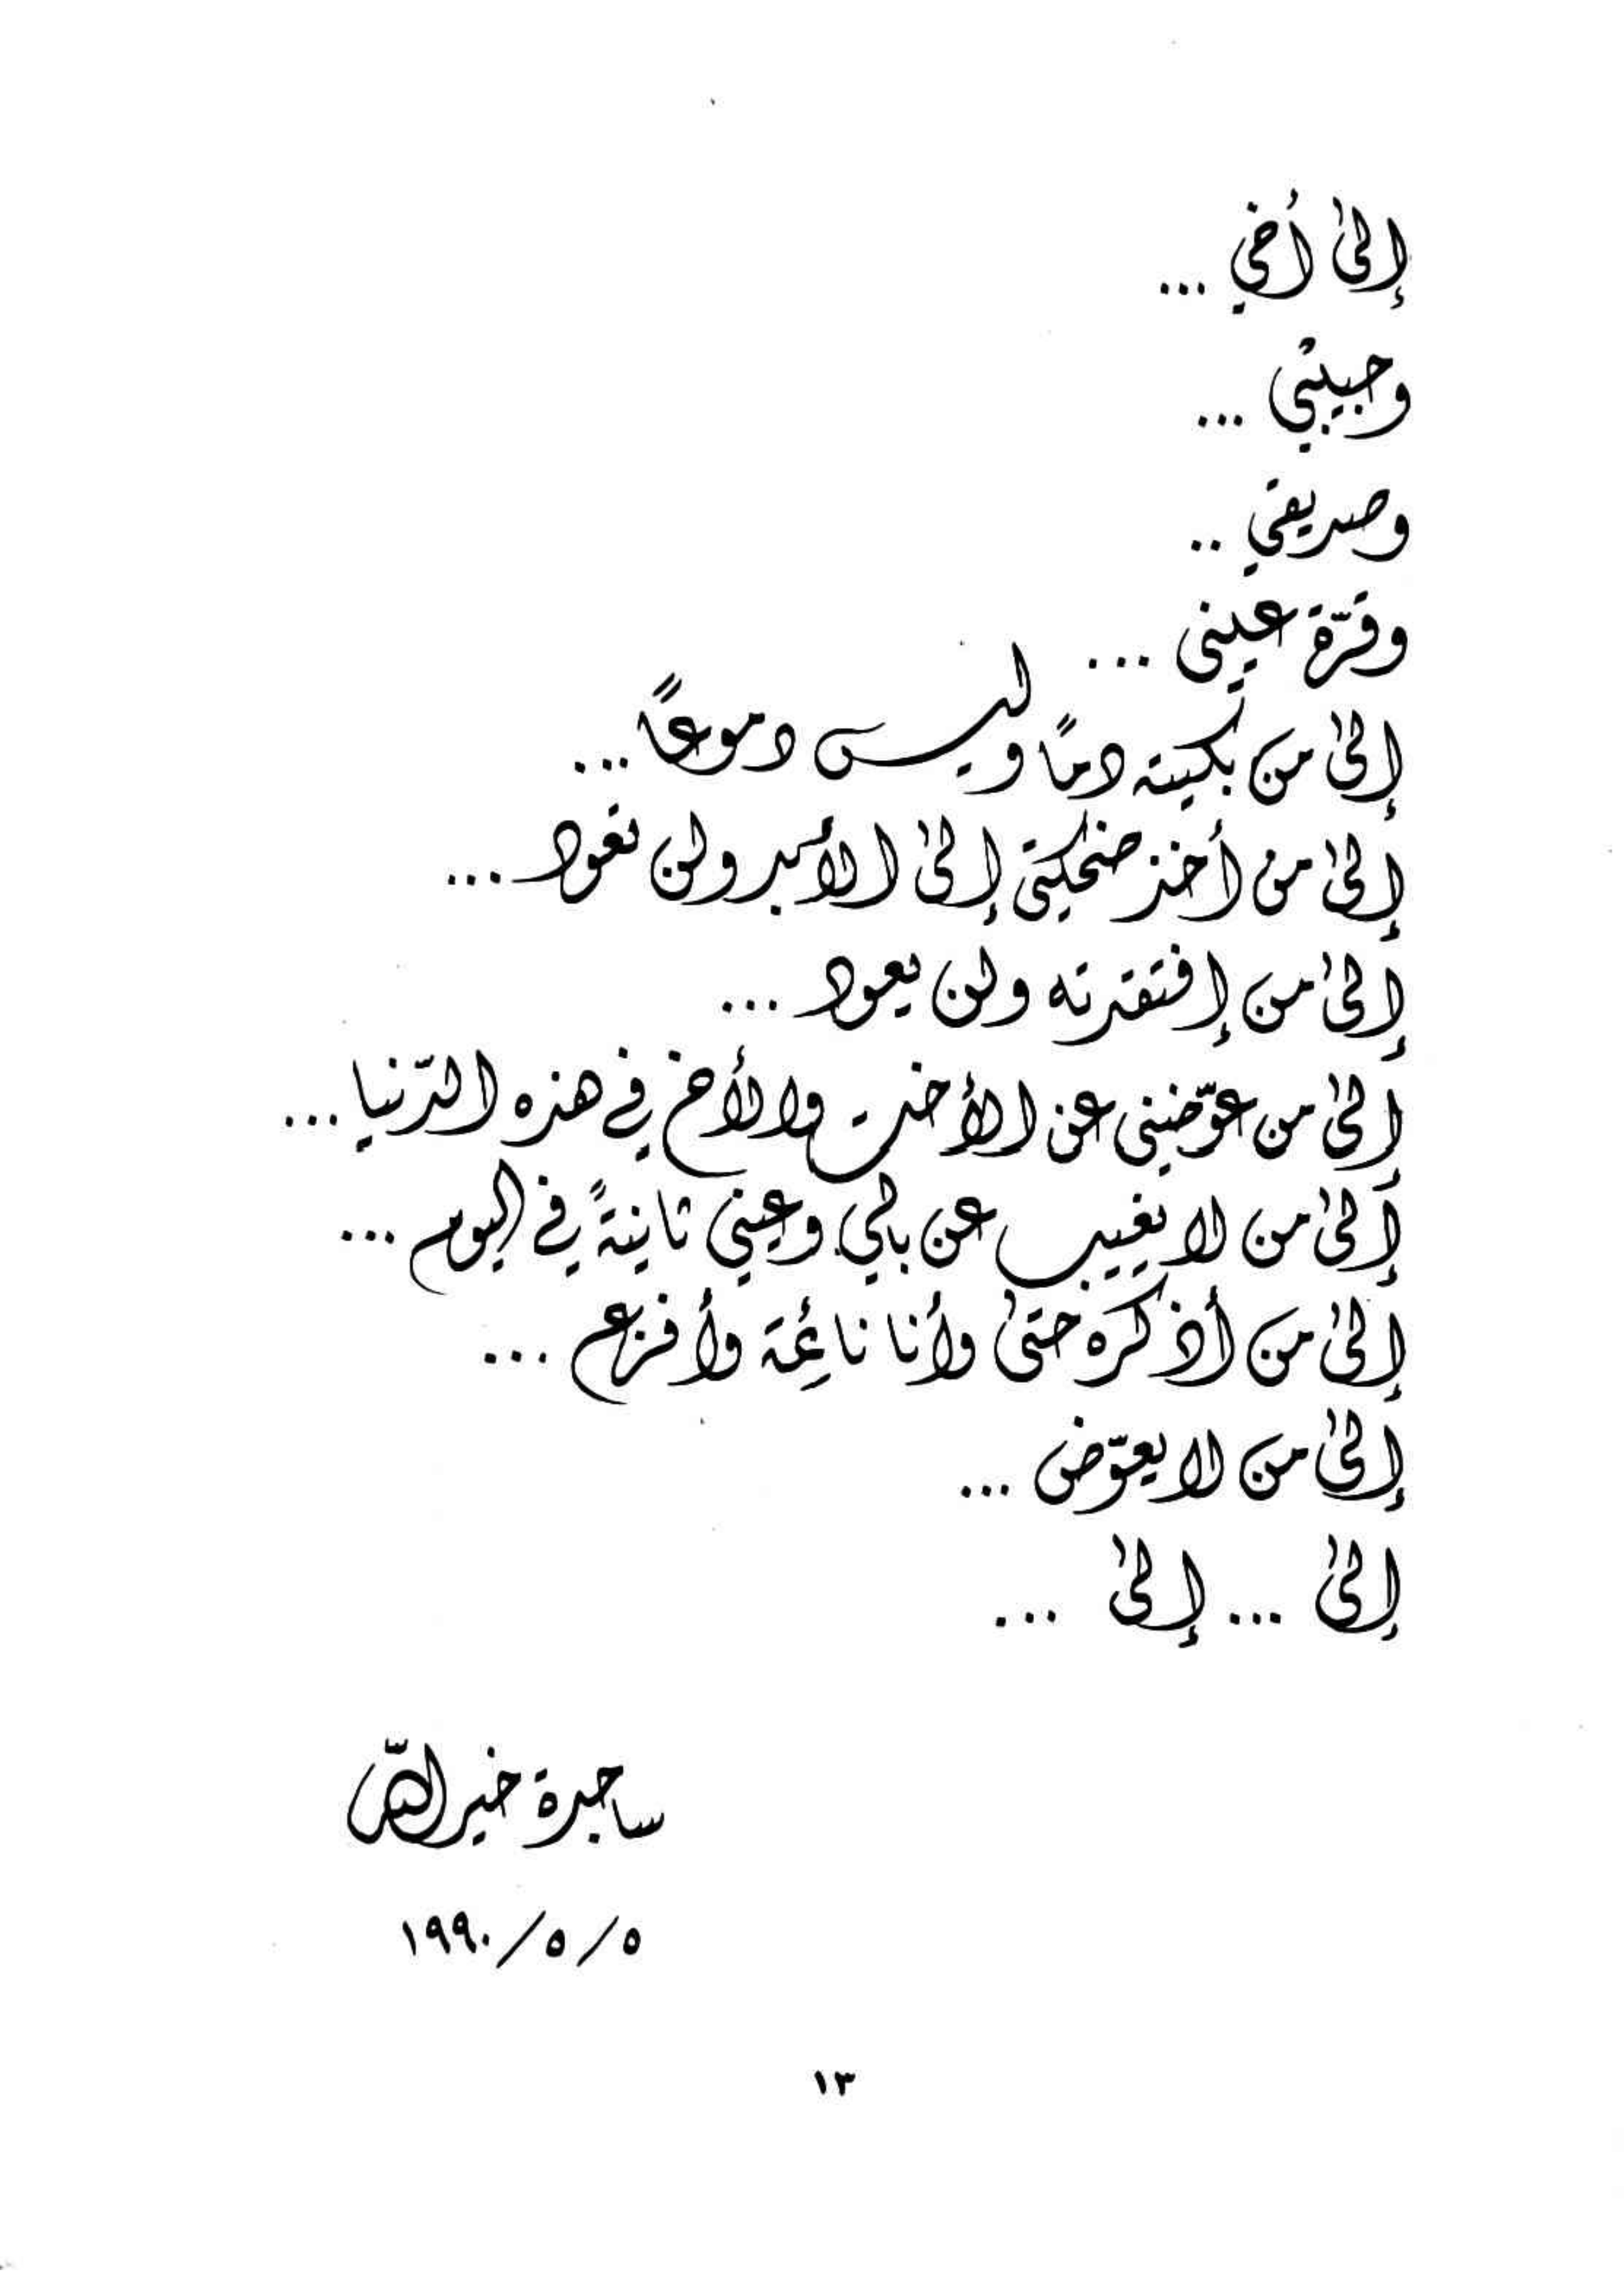 إلىٰ أخي ...
وحبيبي ...
وصديقي ..
وقرّة عيني ...
إلىٰ من بكيته دمًا وليس دموعًا ...
إلىٰ من أخذ ضحكتي إلىٰ الأبد ولن تعود ...
إلىٰ من إفتقدته ولن يعود ...
إلىٰ من عوّضني عن الأخت والأخ في هذه الدّنيا ...
إلىٰ من لا يغيب عن بالي وعيني ثانيةً في اليوم ...
إلىٰ من أذكره حتىٰ وأنا نائمة وأفزع ...
إلىٰ من لا يعوّض ...
إلىٰ ... إلىٰ ...
ساجدة خير الله
٥/٥/١٩٩٠
١٣